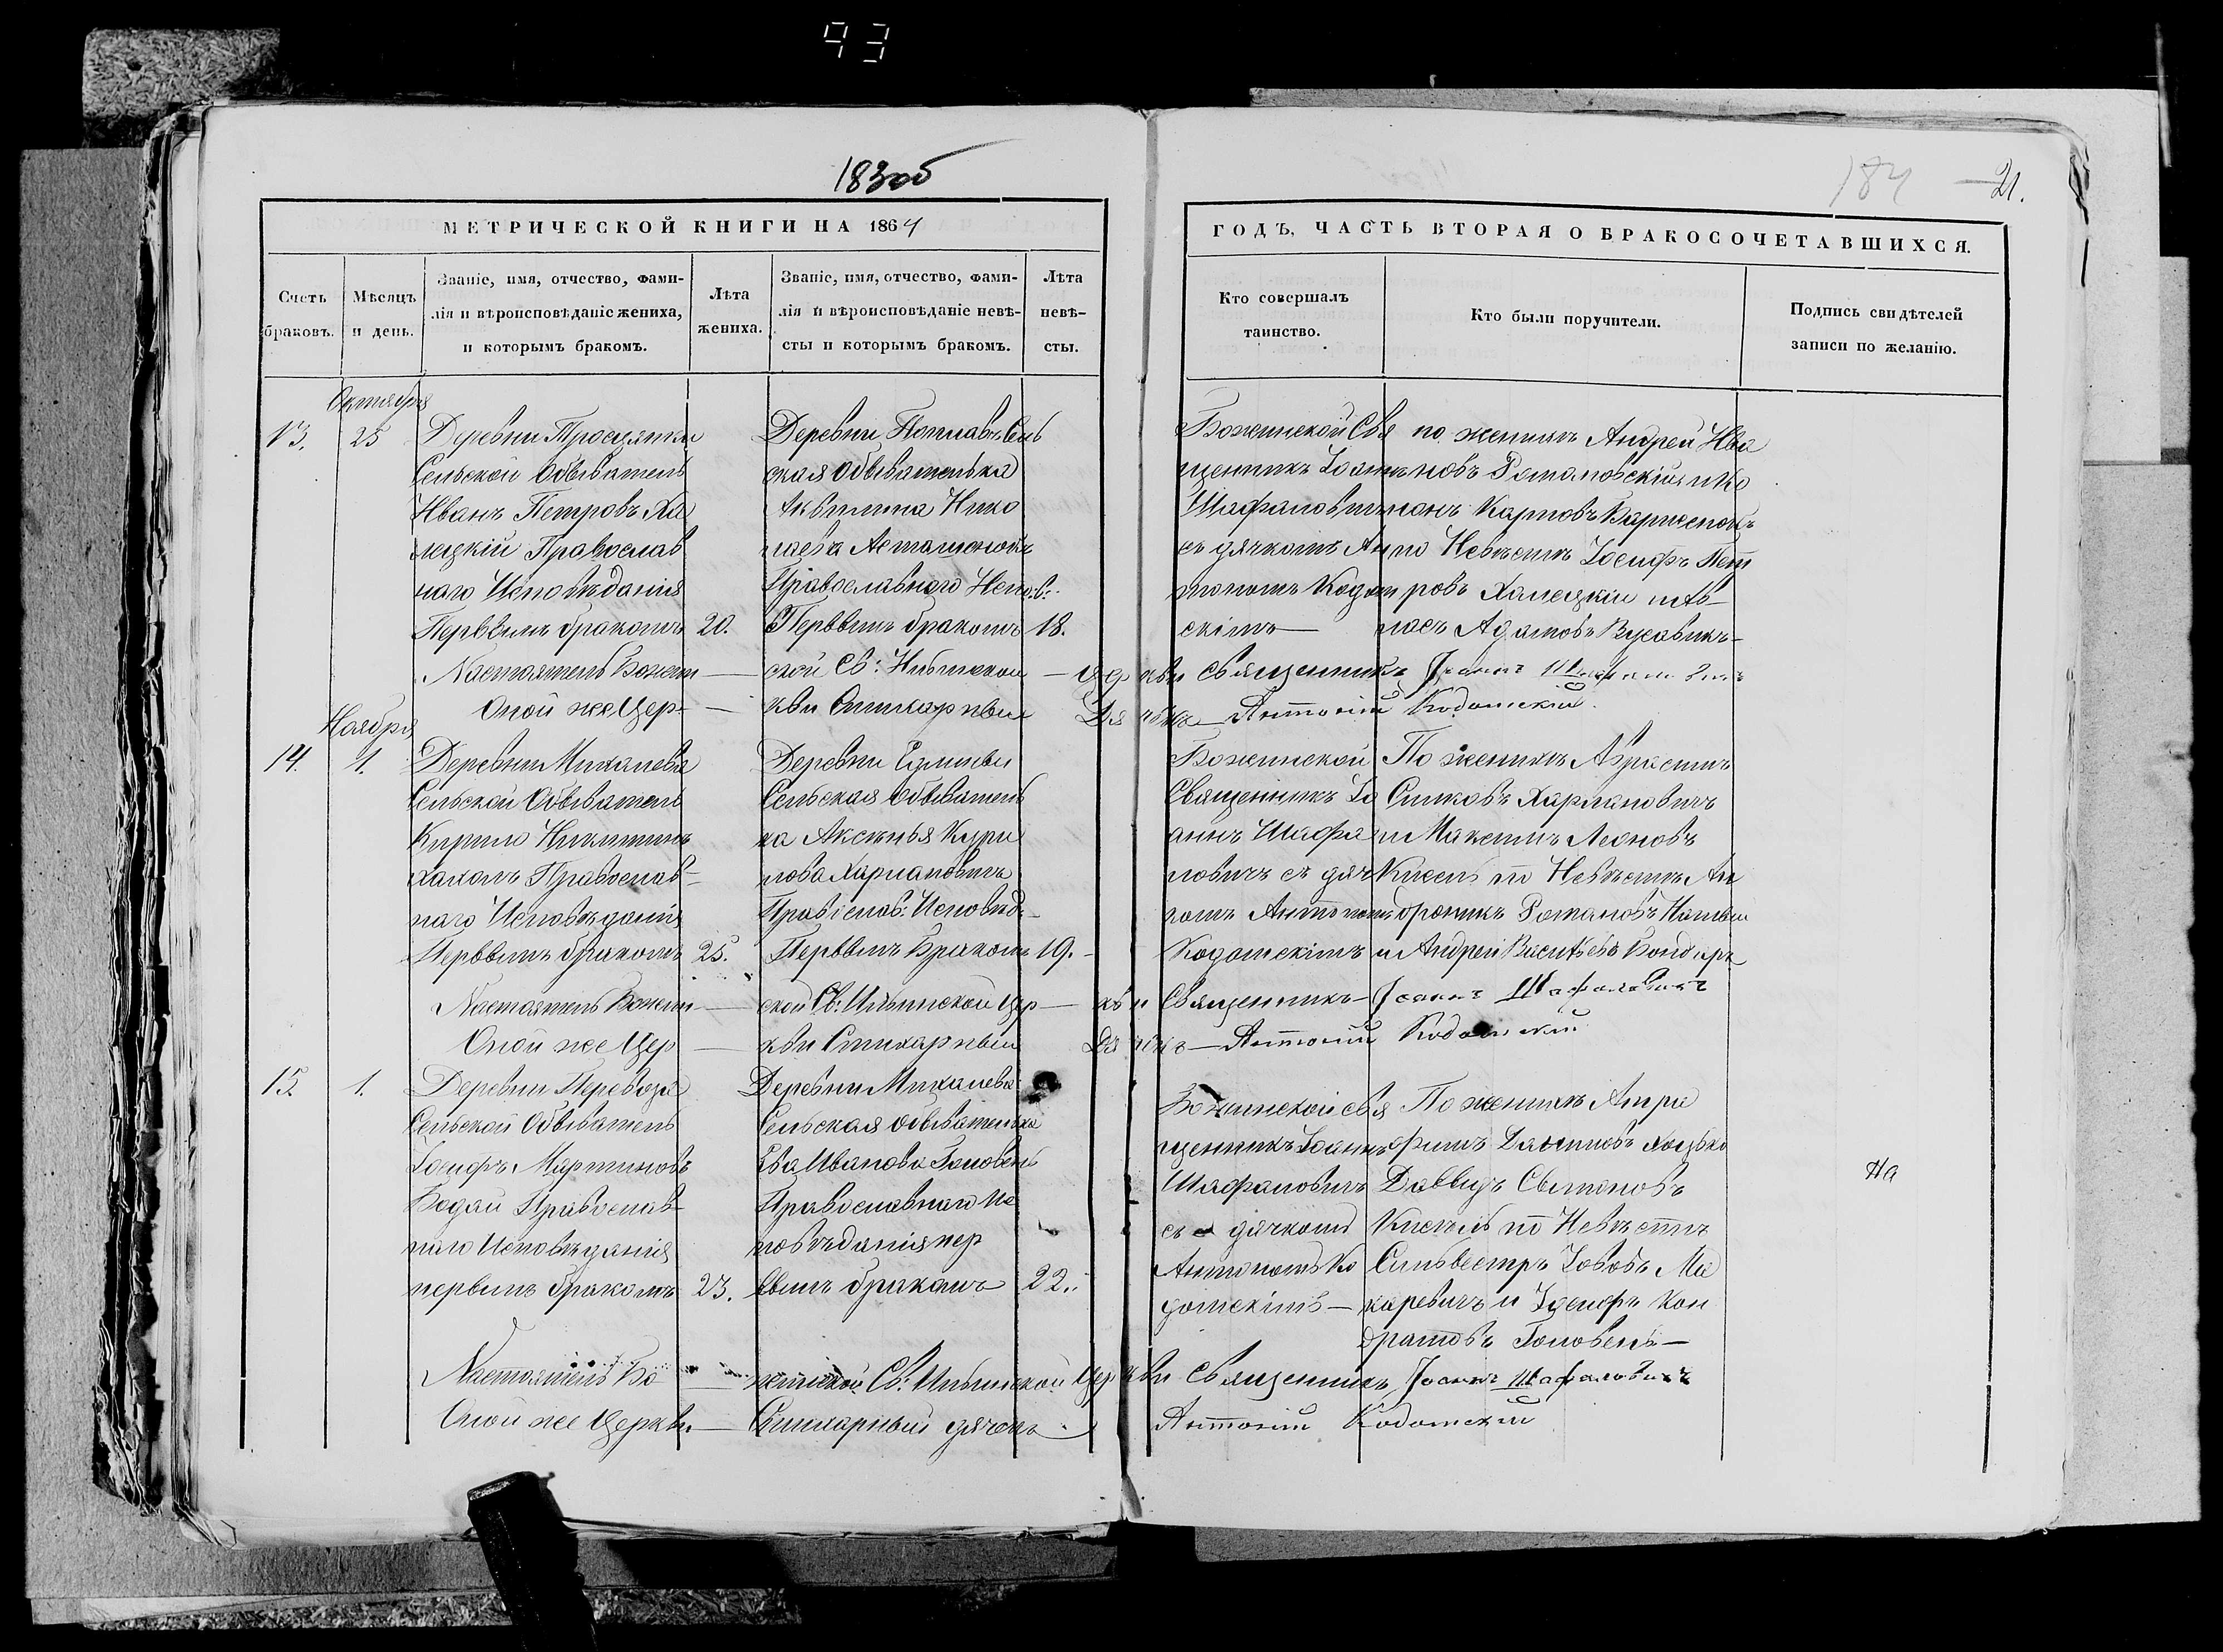 93
183об
184 — 21.
МЕТРИЧЕСКОЙ КНИГИ НА 1864
ГОДЪ, ЧАСТЬ ВТОРАЯ О БРАКОСОЧЕТАВШИХСЯ.
Счетъ браковъ.
Мѣсяцъ и день.
Званіе, имя, отчество, фами-
лія и вѣроисповѣданіе жениха,
и которымъ бракомъ.
Лѣта жениха.
Званіе, имя, отчество, фами-
лія и вѣроисповѣданіе невѣ-
сты и которымъ бракомъ.
Лѣта невѣ-
сты.
Кто совершалъ
таинство.
Кто были поручители.
Подпись свидѣтелей
записи по желанію.
Октября
13. 25
Деревни
Сельской Обыватель
Иванъ Петровъ Ха
лецкій Православ
наго Исповѣданія
Первымъ бракомъ 20.
Деревни Поплавъ Сель
ская Обывателька
Аквилина Нико
лаева
Православнаго Испов:
Первымъ бракомъ 18.
Божинской Свя
щенникъ Іоаннъ
Шафаловичъ
съ дячкомъ Ан
тономъ Кодом
скімъ —
по женихѣ Андрей Ива
новъ Романовскій и
Карповъ
по Невѣстѣ Іосифъ Пет
ровъ Халецкій и
Адамовъ
Настоятель Божин — ской Св: Ильинской — церкви Священникъ Іоаннъ Шафаловичъ
Оной же Цер — кви Стихарный Дячокъ — Антоній Кодомскій.
Ноября
14. 1.
Деревни Михалева
Сельской Обыватель
Кирило Никитинъ
Православ-
наго Исповѣданія
Первымъ бракомъ 25.
Деревни
Сельская Обыватель
ка Аксенья Кури
лова Харлановичъ
Правіслав: Исповѣд-
Первымъ Бракомъ 19.
Божинской
Священникъ Іо
аннъ Шафа
ловичъ съ дяч
комъ Антономъ
Кодомскімъ
По женихѣ
Симковъ Харлановичъ
и Максимъ Леоновъ
Кисель по Невѣстѣ Ам
броникъ Романовъ
и Андрей Васильевъ Бондарь
Настоятель Божин — ской Св: Ильинской Цер — кви Священникъ — Іоаннъ Шафаловичъ
Оной же Цер — кви Стихарный Дячокъ — Антоній Кодомскій
15. 1.
Деревни Перевоза
Сельской Обыватель
Іосифъ Мартиновъ
Бодай Православ-
наго Исповѣданія
первымъ бракомъ 23.
Деревни Михалева
Сельская обывателька
Ева Иванова Головень
Православнаго Ис
повѣданія пер
вымъ бракомъ 22.
Божинской свя
щенникъ Іоаннъ
Шафаловичъ
съ дячкомъ
Антономъ Ко
домскімъ —
По женихѣ
Даниловъ
Давыдъ
Кисель по Невѣстѣ
Сильвестръ Іововъ Ма
каревичъ и Іосифъ Кон
дратовъ Головень —
На
Настоятель Бо — жинской Св: Ильинской Церкви Священникъ Іоаннъ Шафаловичъ
Оной же Церкви — Стихарный дячокъ Антоній Кодомскій